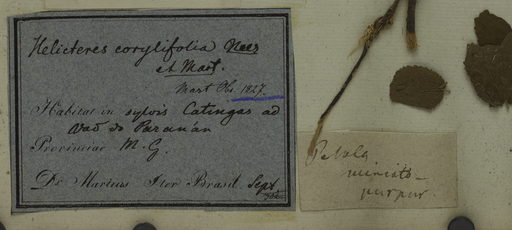 Helicteres corylifolia Nees
et Mart.
Mart Obs. 1827.
Habitat in sylvis Catingas ad
Vaõ do Paranán
Provinciae M. G.
Dr Martius Iter Brasil Sept
Petala
miniato-
purpur.